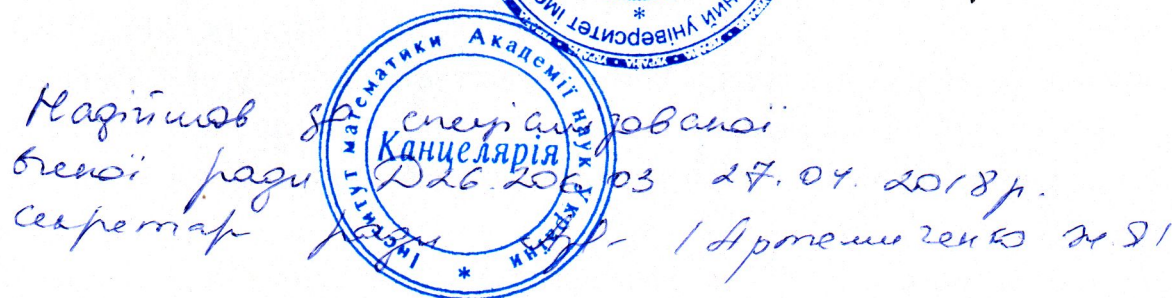 ний університет іме
УКРАЇНА
Інститут математики Академії наук України
Канцелярія
Надійшов до спеціалізованої
вченої ради Д26.206.03 27.04.2018р.
Секретар ради /